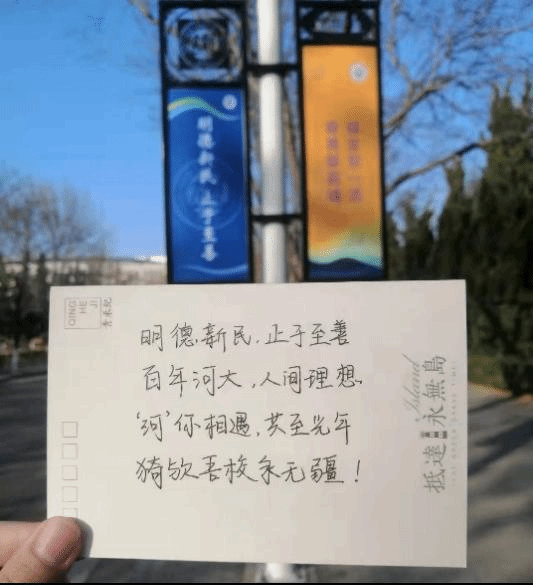 明德新民 止于至善
QING
HE
JI
青禾纪
明德新民.止于至善
百年河大,人间理想.
‘河’你相遇,共至光年
猗欤吾校永无疆!
Island
抵達永無島